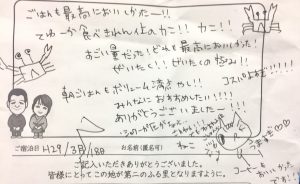 ごはんも最高においしかったー!!
てゆーか食べきれんくらいのカニ!カニ!!
すごい量だった!どれも最高においしかった!
ぜいたく!!ぜいたくの極み!!
朝ごはんもボリューム満点やし!!
コスパよすぎ!!!!
みんなにおすすめしたい!!!!
ありがとうございましたー!!!
ねこ
コーヒーも
おいしかった
です!
ご宿泊日 H29/3月/18日
お名前(匿名可)
ご記入いただきありがとうございました。
皆様にとってこの地が第二のふる里となりますように。